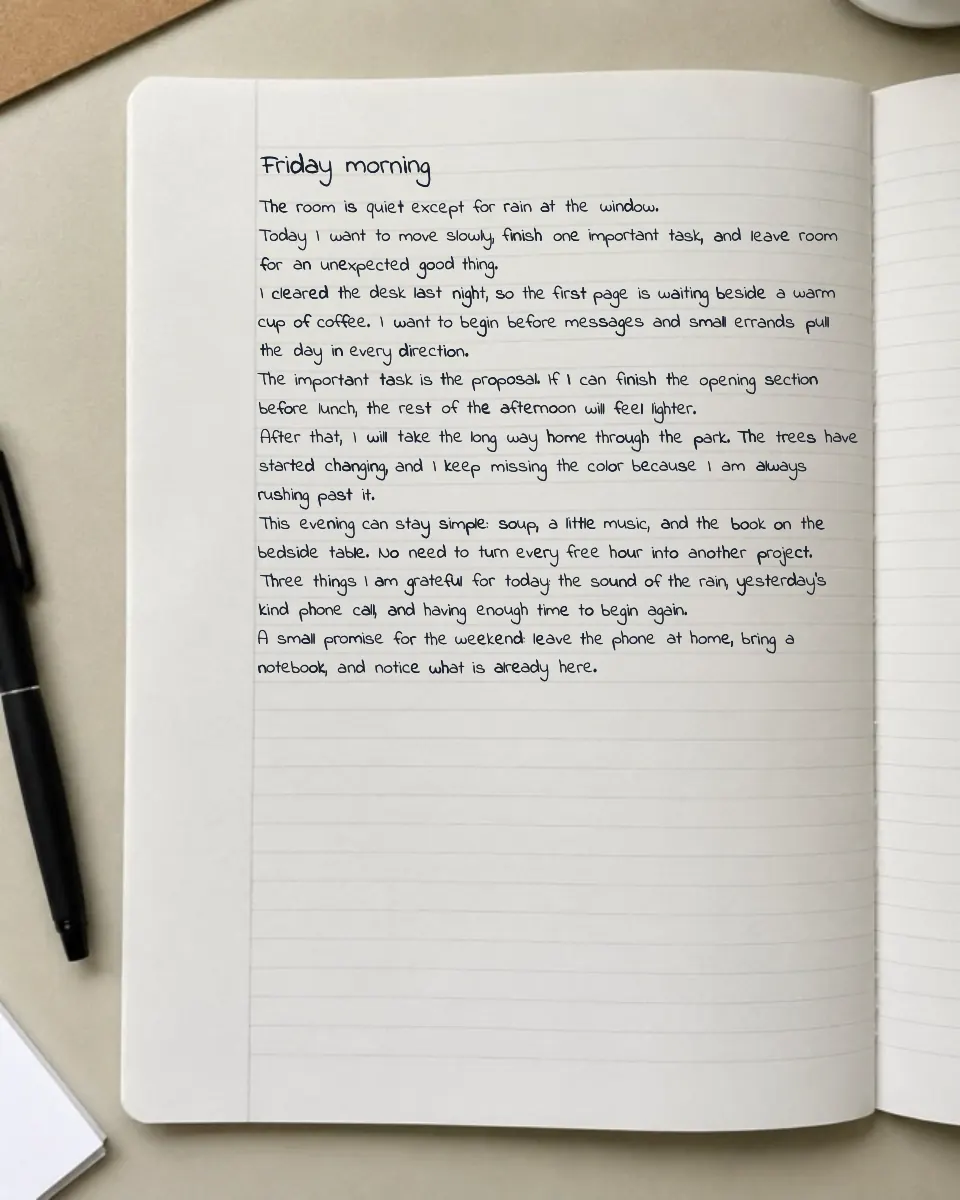 Friday morning
The room is quiet except for rain at the window.
Today I want to move slowly, finish one important task, and leave room
for an unexpected good thing.
I cleared the desk last night, so the first page is waiting beside a warm
cup of coffee. I want to begin before messages and small errands pull
the day in every direction.
The important task is the proposal. If I can finish the opening section
before lunch, the rest of the afternoon will feel lighter.
After that, I will take the long way home through the park. The trees have
started changing, and I keep missing the color because I am always
rushing past it.
This evening can stay simple: soup, a little music, and the book on the
bedside table. No need to turn every free hour into another project.
Three things I am grateful for today: the sound of the rain, yesterday's
kind phone call, and having enough time to begin again.
A small promise for the weekend: leave the phone at home, bring a
notebook, and notice what is already here.